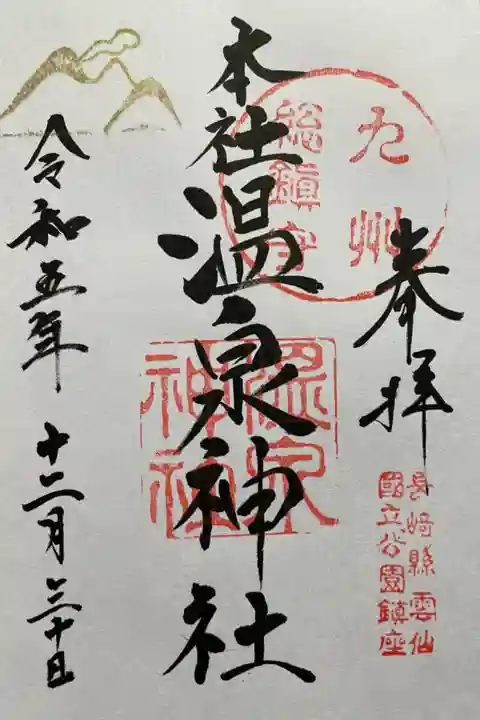 奉拝
長崎縣雲仙
國立公園鎮座
九州
総鎮守
本社温泉神社
温泉
神社
令和五年十二月三十日